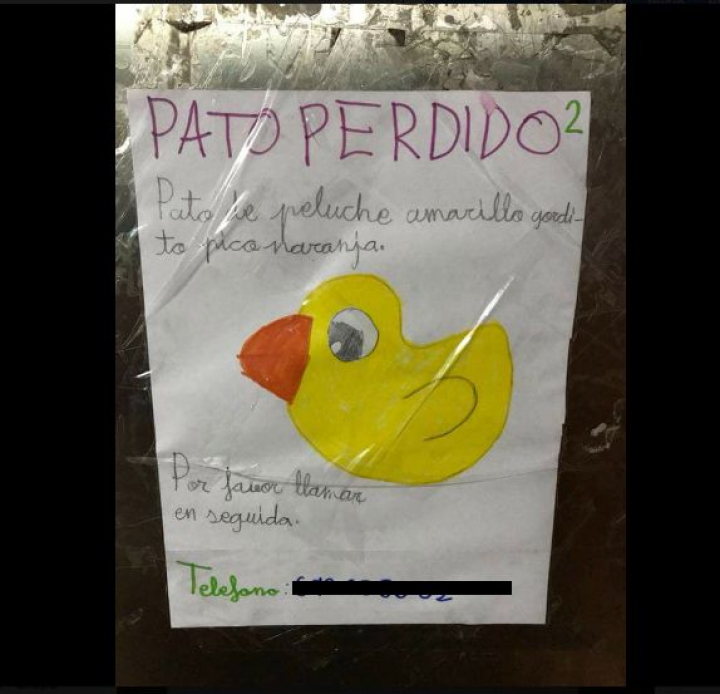 PATO PERDIDO²
Pato de peluche amarillo gordi-
to pico naranja.
Por favor llamar
en seguida.
Telefono: